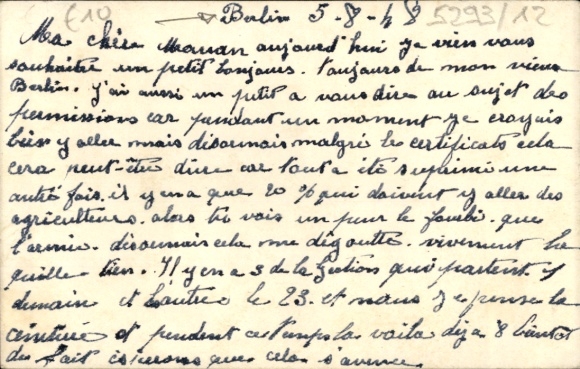 £10
5293/12
Berlin 5-8-48
Ma chère Maman aujourd'hui je vien vous
souhaitre un petit bonjours. toujours de mon vieux
Berlin. j'ai aussi un petit a vous dire au sujet des
permissions car pendant un moment je croyais
bien y aller mais disormais malgré le certificats cela
cera peut-être dure car tout a été suprimé une
autre fois. il y en a que 20 % qui doivent y aller des
agriculteurs. alors tu vois un peur le que
l'armée. disormais cela me dégoutte. vivement la
quille tien. Il y en a 3 de la Section qui partent
demain et l'autre le 23. et nous je pense la
ceinture et pendent ce temps la voila deja 8
de fait que cela s'avance